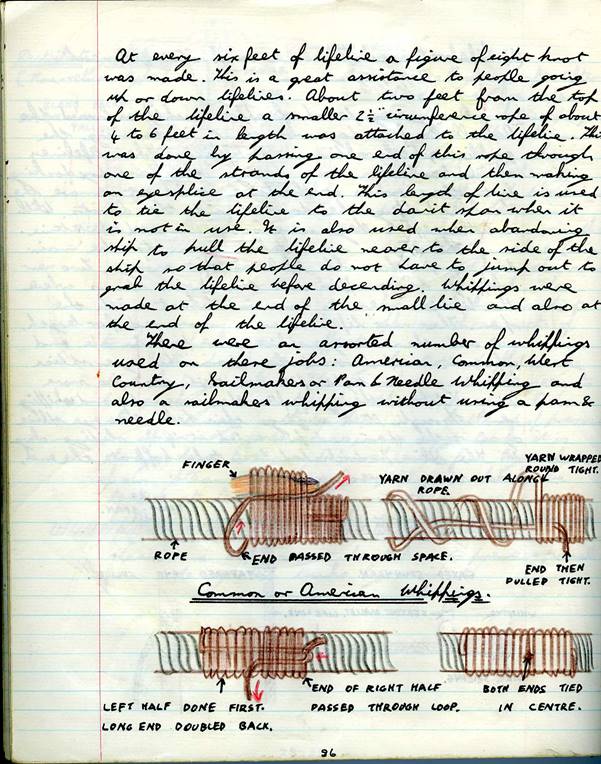 At every six feet of lifeline a figure of eight knot
was made. This is a great assistance to people going
up or down lifelines. About two feet from the top
of the lifeline a smaller 2½" circumference rope of about
4 to 6 feet in length was attached to the lifeline. This
was done by passing one end of this rope through
one of the strands of the lifeline and then making
an eyesplice at the end. This length of line is used
to tie the lifeline to the davit span when it
is not in use. It is also used when abandoning
ship to pull the lifeline nearer to the side of the
ship so that people do not have to jump out to
grab the lifeline before decending. Whippings were
made at the end of the small line and also at
the end of the lifeline.
There were an assorted number of whippings
used on these jobs: American, Common, West
Country, Sailmakers or Pam & Needle Whipping and
also a sailmakers whipping without using a pam &
needle.
FINGER
YARN WRAPPED
ROUND TIGHT.
YARN DRAWN OUT ALONG
ROPE.
ROPE
END PASSED THROUGH SPACE.
END THEN
PULLED TIGHT.
Common or American Whippings.
LEFT HALF DONE FIRST.
LONG END DOUBLED BACK.
END OF RIGHT HALF
PASSED THROUGH LOOP.
BOTH ENDS TIED
IN CENTRE.
36